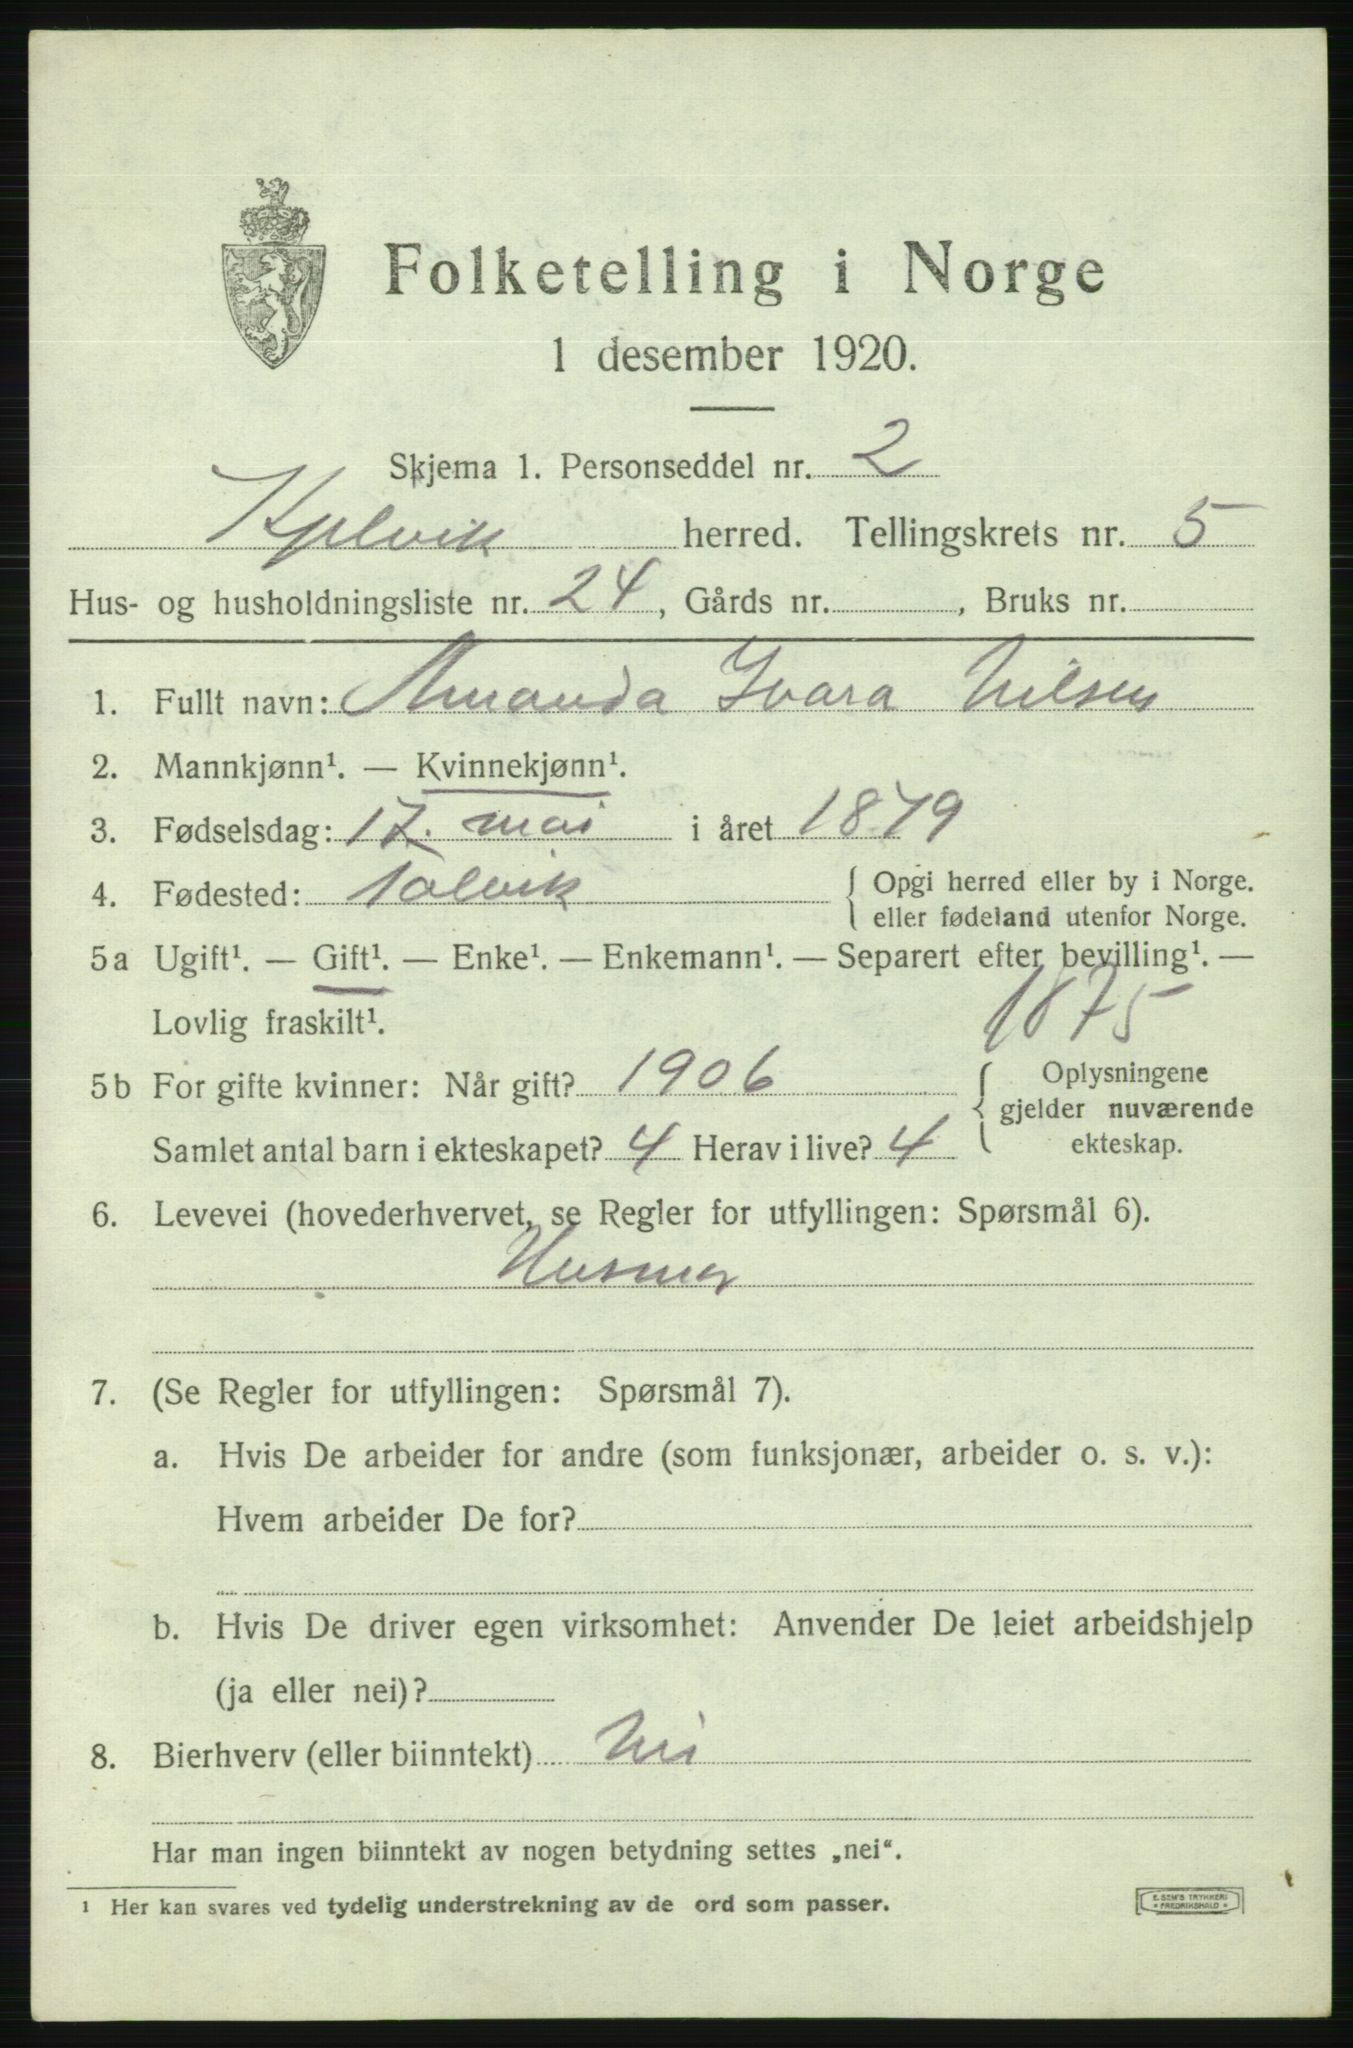 Folketelling i Norge
1 desember 1920.
Skjema 1. Personseddel nr. 2
Kjelvik herred. Tellingskrets nr. 5
Hus- og husholdningsliste nr. 24, Gårds nr. , Bruks nr.
1. Fullt navn: Amanda Ivara Nilsen
2. Mannkjønn¹. — Kvinnekjønn¹.
3. Fødselsdag: 17. mai i året 1879
4. Fødested: Talvik { Opgi herred eller by i Norge.
eller fødeland utenfor Norge.
5a Ugift¹. — Gift¹. — Enke¹. — Enkemann¹. — Separert efter bevilling¹. —
Lovlig fraskilt¹. 1875
5b For gifte kvinner: Når gift? 1906 { Oplysningene
gjelder nuværende
Samlet antal barn i ekteskapet? 4 Herav i live? 4 ekteskap.
6. Levevei (hovederhvervet, se Regler for utfyllingen: Spørsmål 6).
Husmor
7. (Se Regler for utfyllingen: Spørsmål 7).
a. Hvis De arbeider for andre (som funksjonær, arbeider o. s. v.):
Hvem arbeider De for?
b. Hvis De driver egen virksomhet: Anvender De leiet arbeidshjelp
(ja eller nei)?
8. Bierhverv (eller biinntekt) Nei
Har man ingen biinntekt av nogen betydning settes „nei“.
¹ Her kan svares ved tydelig understrekning av de ord som passer.
E. SEM'S TRYKKERI
* FREDRIKSHALD *